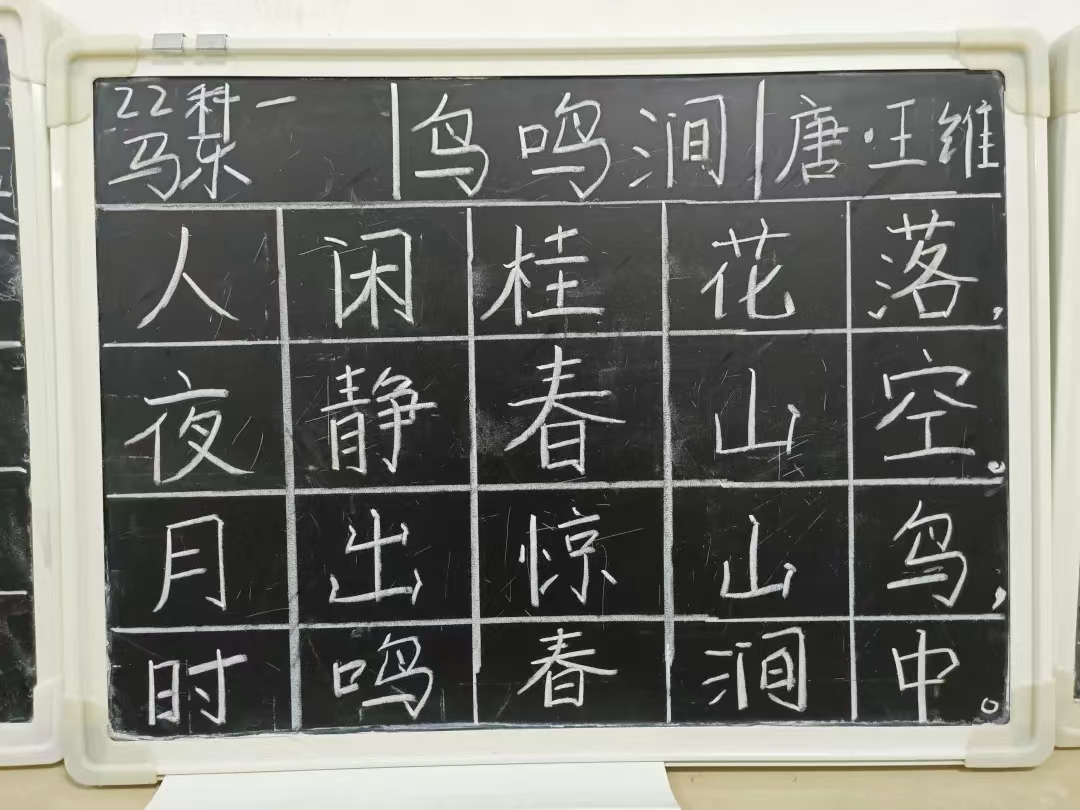 22科一
马东
鸟鸣涧
唐·王维
人闲桂花落，
夜静春山空。
月出惊山鸟，
时鸣春涧中。